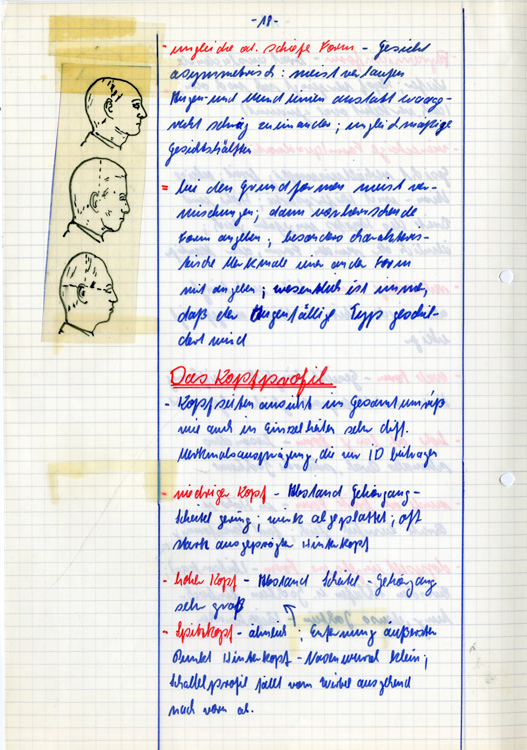 - 18 -
- ungleiche od. schiefe Form - Gesicht
asymmetrisch: meist verlaufen
Augen- und Mundlinien anstatt waag-
recht schräg zueinander; ungleichmäßige
Gesichtshälften
= bei den Grundformen meist Ver-
mischungen; dann vorherrschende
Form angeben; besonders charakteris-
tische Merkmale einer anderen Form
mit angeben; wesentlich ist immer,
daß der Augenfällige Typ geschil-
dert wird
Das Kopfprofil
- Kopfseitenansicht im Gesamtumriß
wie auch in Einzelheiten sehr diff.
Merkmalsausprägung, die zur ID beitragen
- niedriger Kopf - Abstand Gehörgang-
Scheitel gering; wirkt abgeplattet; oft
stark ausgeprägter Hinterkopf
- hoher Kopf - Abstand Scheitel - Gehörgang
sehr groß
- Spitzkopf - ähnelt ↑; Entfernung äußerster
Punkt Hinterkopf - Nasenwurzel klein;
Schädelprofil fällt vom Wirbel ausgehend
nach vorn ab.